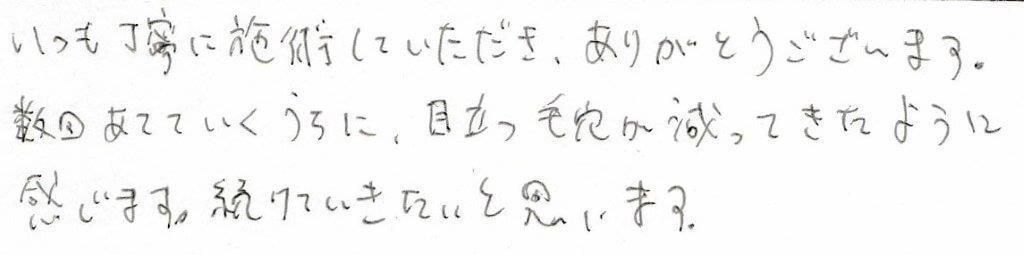 いつも丁寧に施術していただき、ありがとうございます。
数回あてていくうちに、目立つ毛穴が減ってきたように
感じます。続けていきたいと思います。